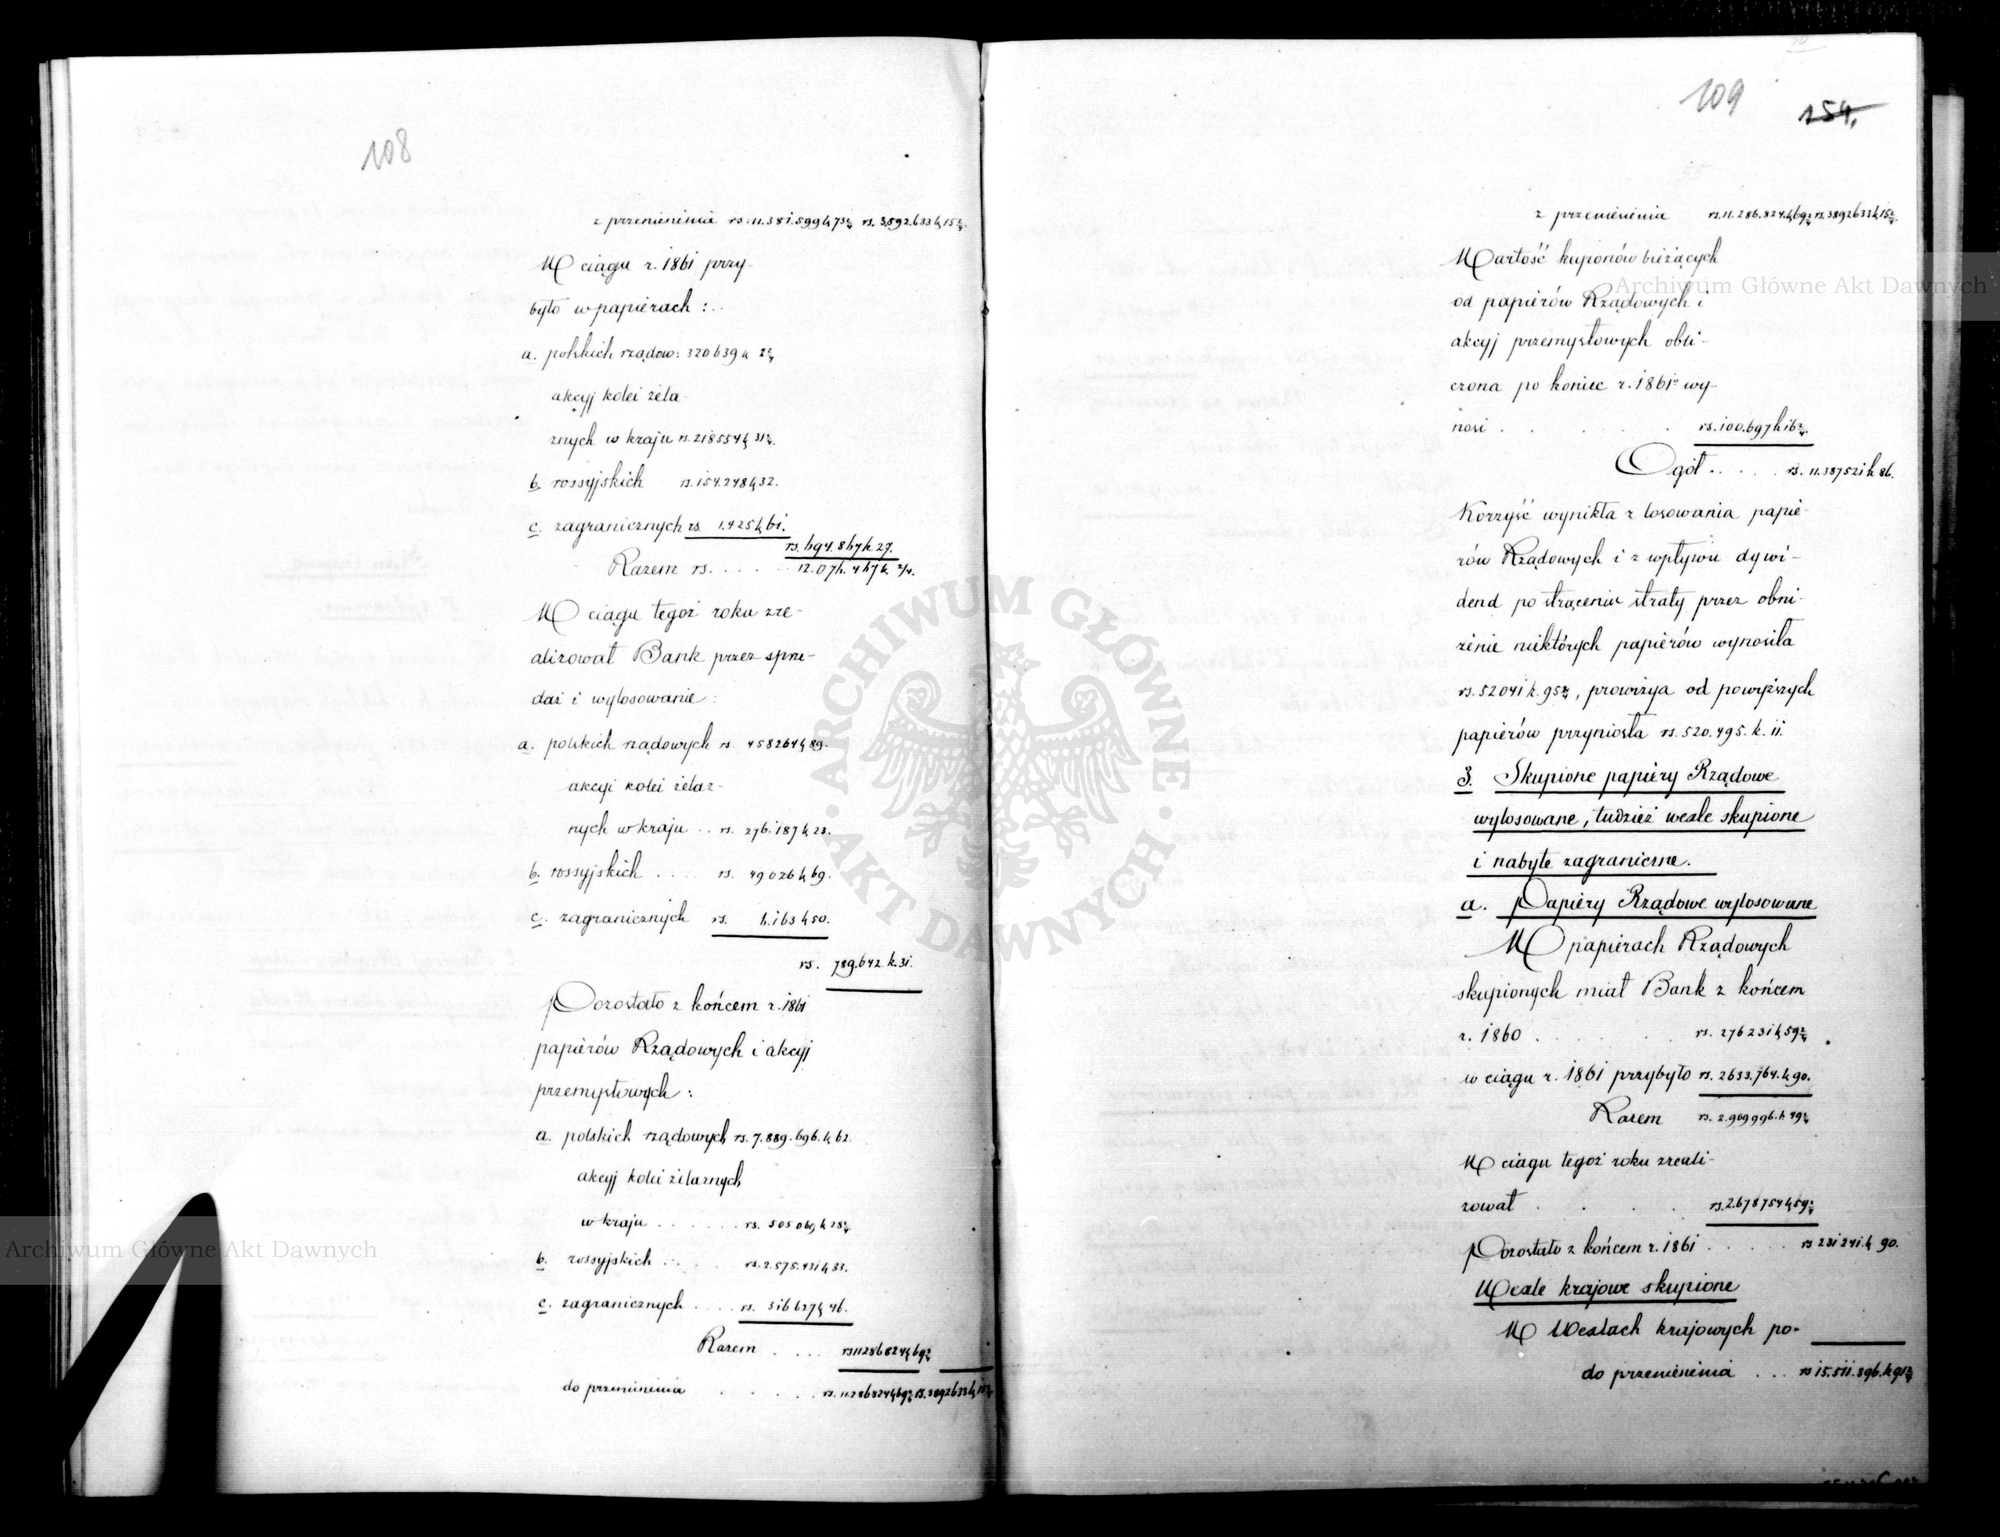 108
z przeniesienia rs. 11.381.599 k. 73 2/4 rs. 3.892.633 k. 15 2/4.
W ciągu r. 1861 przy-
było w papiérach:
a. polskich rządow: 320639 k 2 2/4
akcyj kolei żela-
znych w kraju rs. 218554 k 31 2/4.
b. rossyjskich rs. 154.248 k 32.
c. zagranicznych rs. 1.425 k 61.
rs. 694.867 k 27.
Razem rs. . . . . 12.076.467 k. 2/4.
W ciągu tegoż roku zre-
alizował Bank przez sprze-
daż i wylosowanie:
a. polskich rządowych rs. 458264 k 89.
akcyi kolei żelaz-
nych w kraju . . rs. 276.187 k 23.
b. rossyjskich . . . . rs. 49026 k 69.
c. zagranicznych rs. 6.163 k 50.
rs. 789.642. k. 31.
Pozostało z końcem r. 1861
papiérów Rządowych i akcyj
przemysłowych:
a. polskich rządowych rs. 7.889.696. k 62.
akcyj kolei żelaznych
w kraju . . . . . . rs. 505069 k 28 2/4
b. rossyjskich . . . rs. 2.575.431 k 33.
c. zagranicznych . . . . rs. 316627 k 46.
Razem . . . . rs 11286824 k 69 2/4
do przeniesienia . . . . . . rs. 11286824 k 69 2/4 rs. 3892633 k 15 2/4
109
154.
z przeniesienia rs. 11.286.824. k 69 2/4 rs. 3892633 k 15 2/4.
Wartość kuponów bieżących
od papiérów Rządowych i
akcyj przemysłowych obli-
czona po koniec r. 1861o wy-
nosi . . . . . rs. 100.697 k 16 2/4.
Ogół . . . . . rs. 11.387521 k 86.
Korzyść wynikła z losowania papie-
rów Rządowych i z wpływu dywi-
dend po strąceniu straty przez obni-
żenie niektórych papiérów wynosiła
rs. 52041 k. 95 2/4, prowizya od powyższych
papiérów przyniosła rs. 520.495. k. 11.
3. Skupione papiéry Rządowe
wylosowane, tudzież wexle skupione
i nabyte zagraniczne.
a. Papiéry Rządowe wylosowane
W papiérach Rządowych
skupionych miał Bank z końcem
r. 1860 . . . . . . rs. 276231 k 59 2/4
w ciągu r. 1861 przybyło rs. 2633.764. k 90.
Razem rs. 2.909996. k 49 2/4
W ciągu tegoż roku zreali-
zował . . . . . rs. 2678754 k 59 2/4
Pozostało z końcem r. 1861 . . . . . rs 231241. k 90.
Wexle krajowe skupione
W Wexlach krajowych po-
do przeniesienia . . . rs 15.511.396. k 91 2/4
Archiwum Główne Akt Dawnych
Archiwum Główne Akt Dawnych
ARCHIWUM GŁÓWNE · AKT DAWNYCH ·